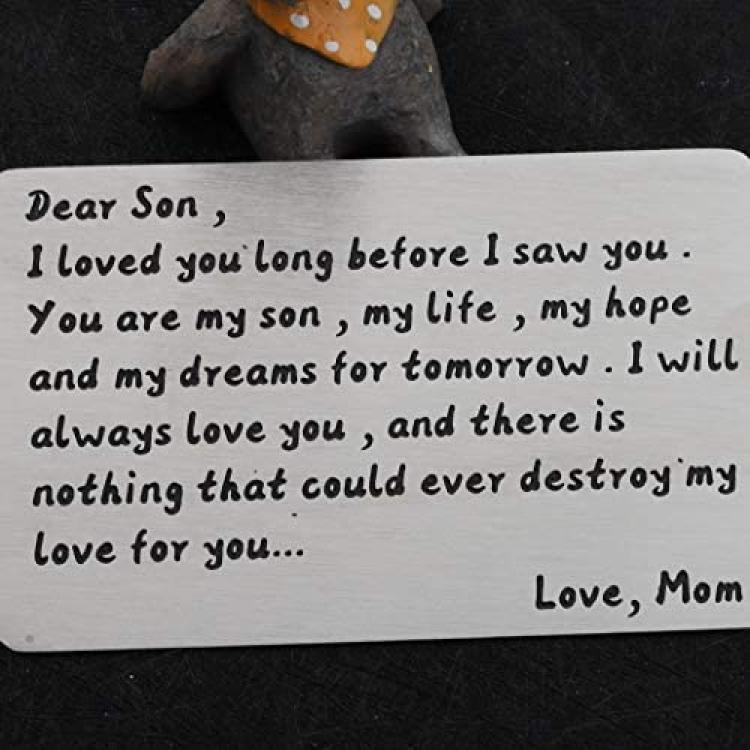 Dear Son ,
I loved you long before I saw you .
You are my son , my life , my hope
and my dreams for tomorrow . I will
always love you , and there is
nothing that could ever destroy my
love for you...
Love, Mom